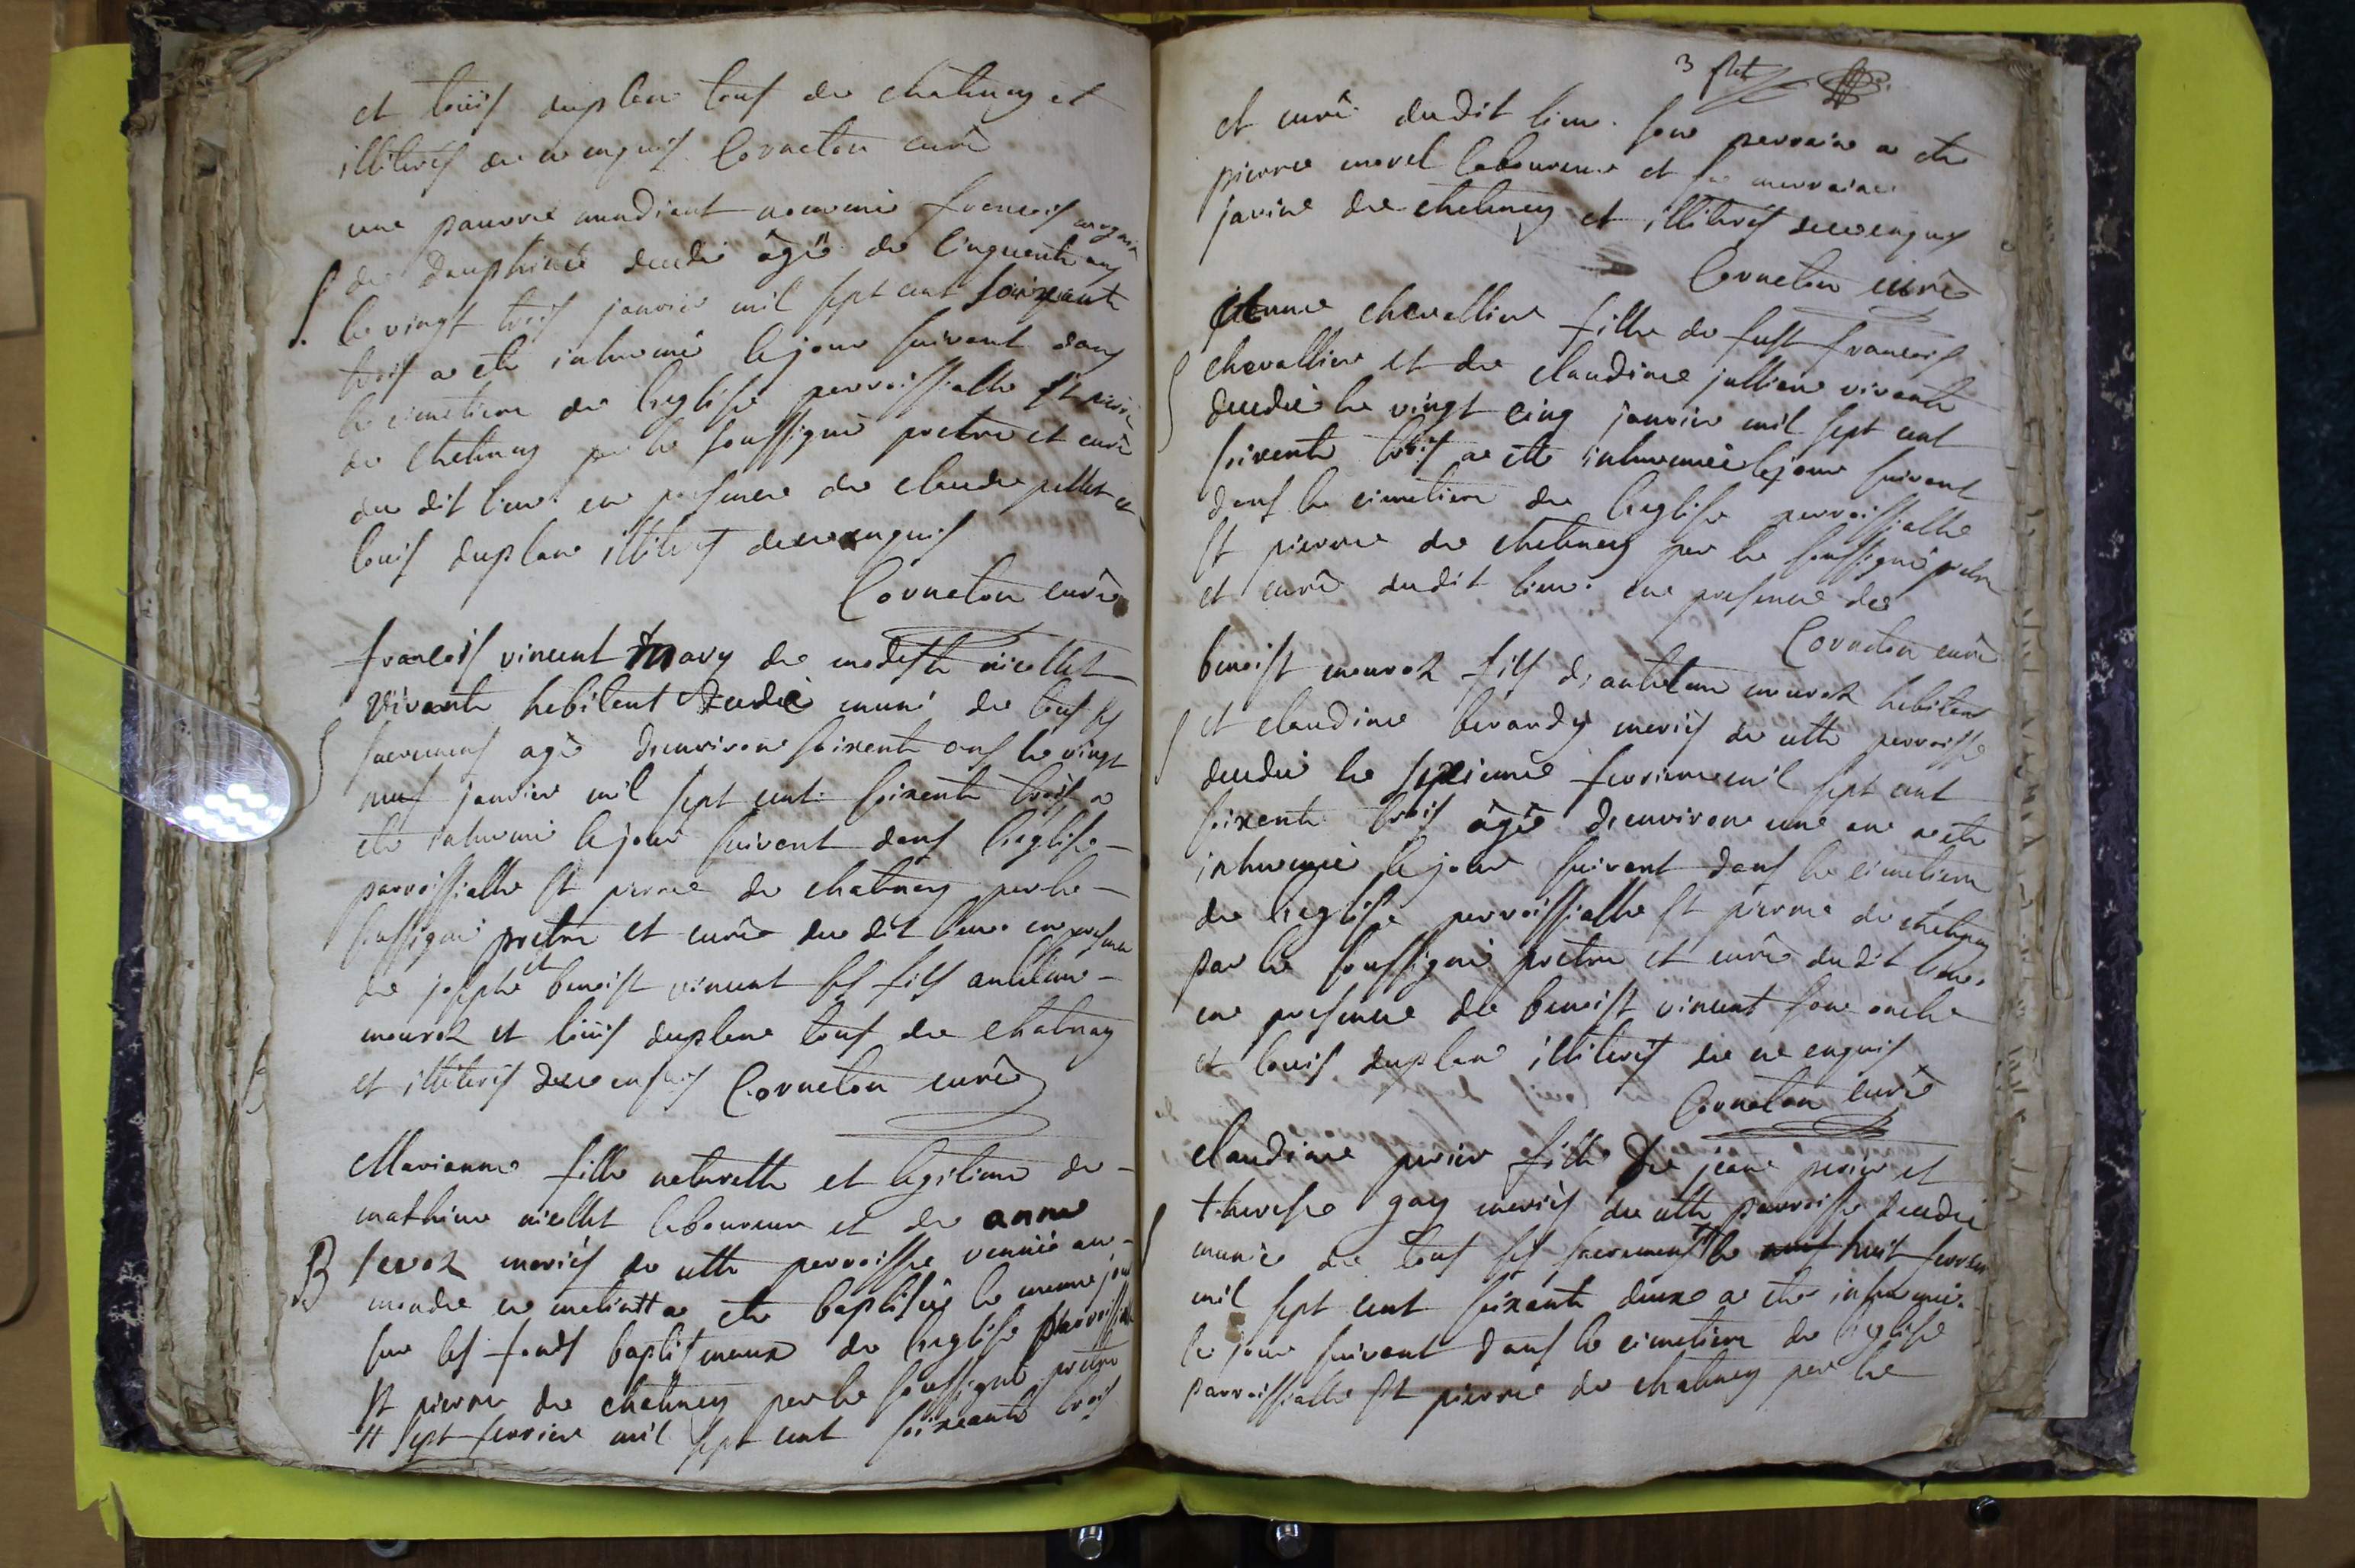 et loüis duplan tous de chatenay et
illiterés de ce enquis. Corneton curé
une pauvre mandiant nommé francois
de dauphiné decedé âgé de cinquante ans
le vingt trois janvier mil sept cent soixante
trois a ete inhumé le jour suivant dans
le cimetiere de l'eglise parroissialle st pierre
de chatenay par le soussigné pretre et curé
du dit lieu en presence de claude pillet et
louis duplan illiterés de ce enquis
Corneton curé
francois vincent mary de modeste niollet
vivante habitant decedé muni de tous ses
sacremens agé d'environ soixente ans le vingt
neuf janvier mil sept cent soixente trois a
ete inhumé le jour suivant dans l'eglise
parroissialle st pierre de chatenay par le
soussigné pretre et curé du dit lieu en presence
de joseph et benoist vincent ses fils antelme
mourat et loüis duplan tous de chatenay
et illiterés de ce enquis Corneton curé
Marianne fille naturelle et legitime de
mathieu niollet laboureur et de anne
sevoz mariés de cette parroisse venüe au
monde ce matin # a ete baptisée le meme jour
sur les fonds baptismaux de l'eglise parroissialle
st pierre de chatenay par le soussigné pretre
# sept fevrier mil sept cent soixante trois
B
3 flet
et curé dudit lieu. son parrain a ete
pierre morel laboureur et sa marraine
javine de chatenay et illiterés de ce enquis
Corneton curé
etienne chevallier fille de fust francois
chevallier et de claudine jullien vivante
decedée le vingt cinq janvier mil sept cent
soixente trois a ete inhumée le jour suivant
dans le cimetiere de l'eglise parroissialle
st pierre de chatenay par le soussigné pretre
et curé dudit lieu. en presence de
Corneton curé
benoist mourat fils d'antelme mourat habitant
et claudine berandy mariés de cette parroisse
decedé le sixieme fevrier mil sept cent
soixente trois âgé d'environ une an a ete
inhumé le jour suivant dans le cimetiere
de l'eglise parroissialle st pierre de chatenay
par le soussigné pretre et curé dudit lieu.
en presence de benoist vincent son oncle
et louis duplan illiterés de ce enquis
Corneton curé
claudine perier fille de jean perier et
therese gay mariés de cette parroisse decedée
munie de tous ses sacremens le huit fevrier
mil sept cent soixante deux a ete inhumée
le jour suivant dans le cimetiere de l'eglise
parroissialle st pierre de chatenay par le